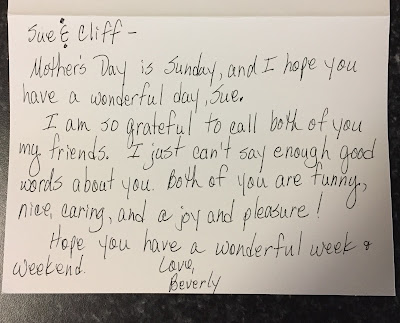 Sue & Cliff -
Mother's Day is Sunday, and I hope you
have a wonderful day, Sue.
I am so grateful to call both of you
my friends. I just can't say enough good
words about you. Both of you are funny,
nice, caring, and a joy and pleasure!
Hope you have a wonderful week &
weekend.
Love,
Beverly